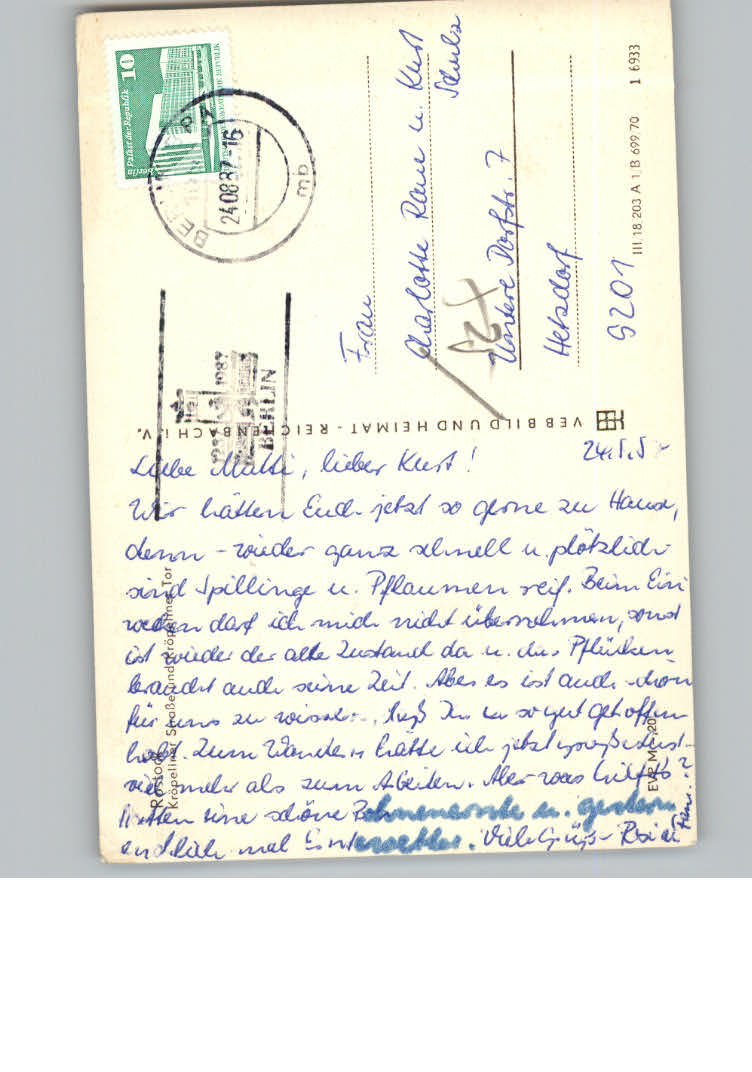 Liebe Mutti, lieber Kurt! 24.
Wir hätten Euch jetzt so gerne zu Hause,
denn - wieder ganz schnell u. plötzlich
sind Spillinge u. Pflaumen reif. Beim Ein
wecken darf ich mich nicht übernehmen, sonst
ist wieder der alte Zustand da u. das Pflücken
braucht auch seine Zeit. Aber es ist auch schön
für uns zu wissen, daß so gut getroffen
habt. Zum Wandern hätte ich jetzt große Lust
viel mehr als zum Arbeiten. Aber was hilft's?
Hatten eine schöne u. gestern
endlich mal Viele Grüße Rosi u. Fam.
Frau
Charlotte u. Kurt
Schulz
Untere Dorfstr. 7
Hetzdorf
9201
10
Palast der Republik
Berlin
24.08.87-16
BERLIN
mb
1987
BERLIN
VEB BILD UND HEIMAT - REICHENBACH I. V.
III 18 203 A 1/B 699.70 1 6933
Rostock
Kröpeliner Straße und Kröpeliner Tor